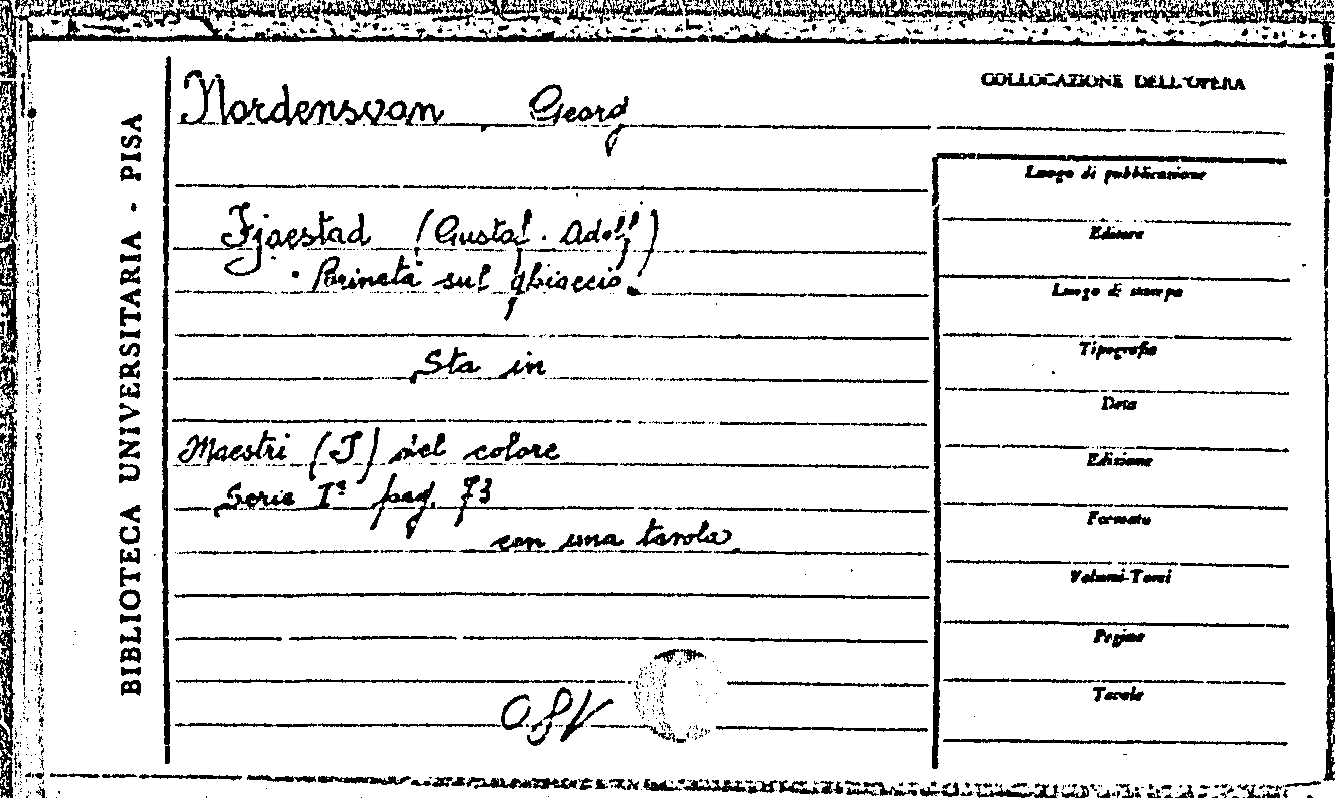 BIBLIOTECA UNIVERSITARIA - PISA
Nordensvan, Georg
Fjaestad (Gustaf. Adolf)
Brinata sul ghiaccio.
Sta in
Maestri (I) del colore
Serie Iª pag. 73
con una tavola
COLLOCAZIONE DELL'OPERA
Luogo di pubblicazione
Editore
Luogo di stampa
Tipografia
Data
Edizione
Formato
Volumi-Tomi
Pagine
Tavole